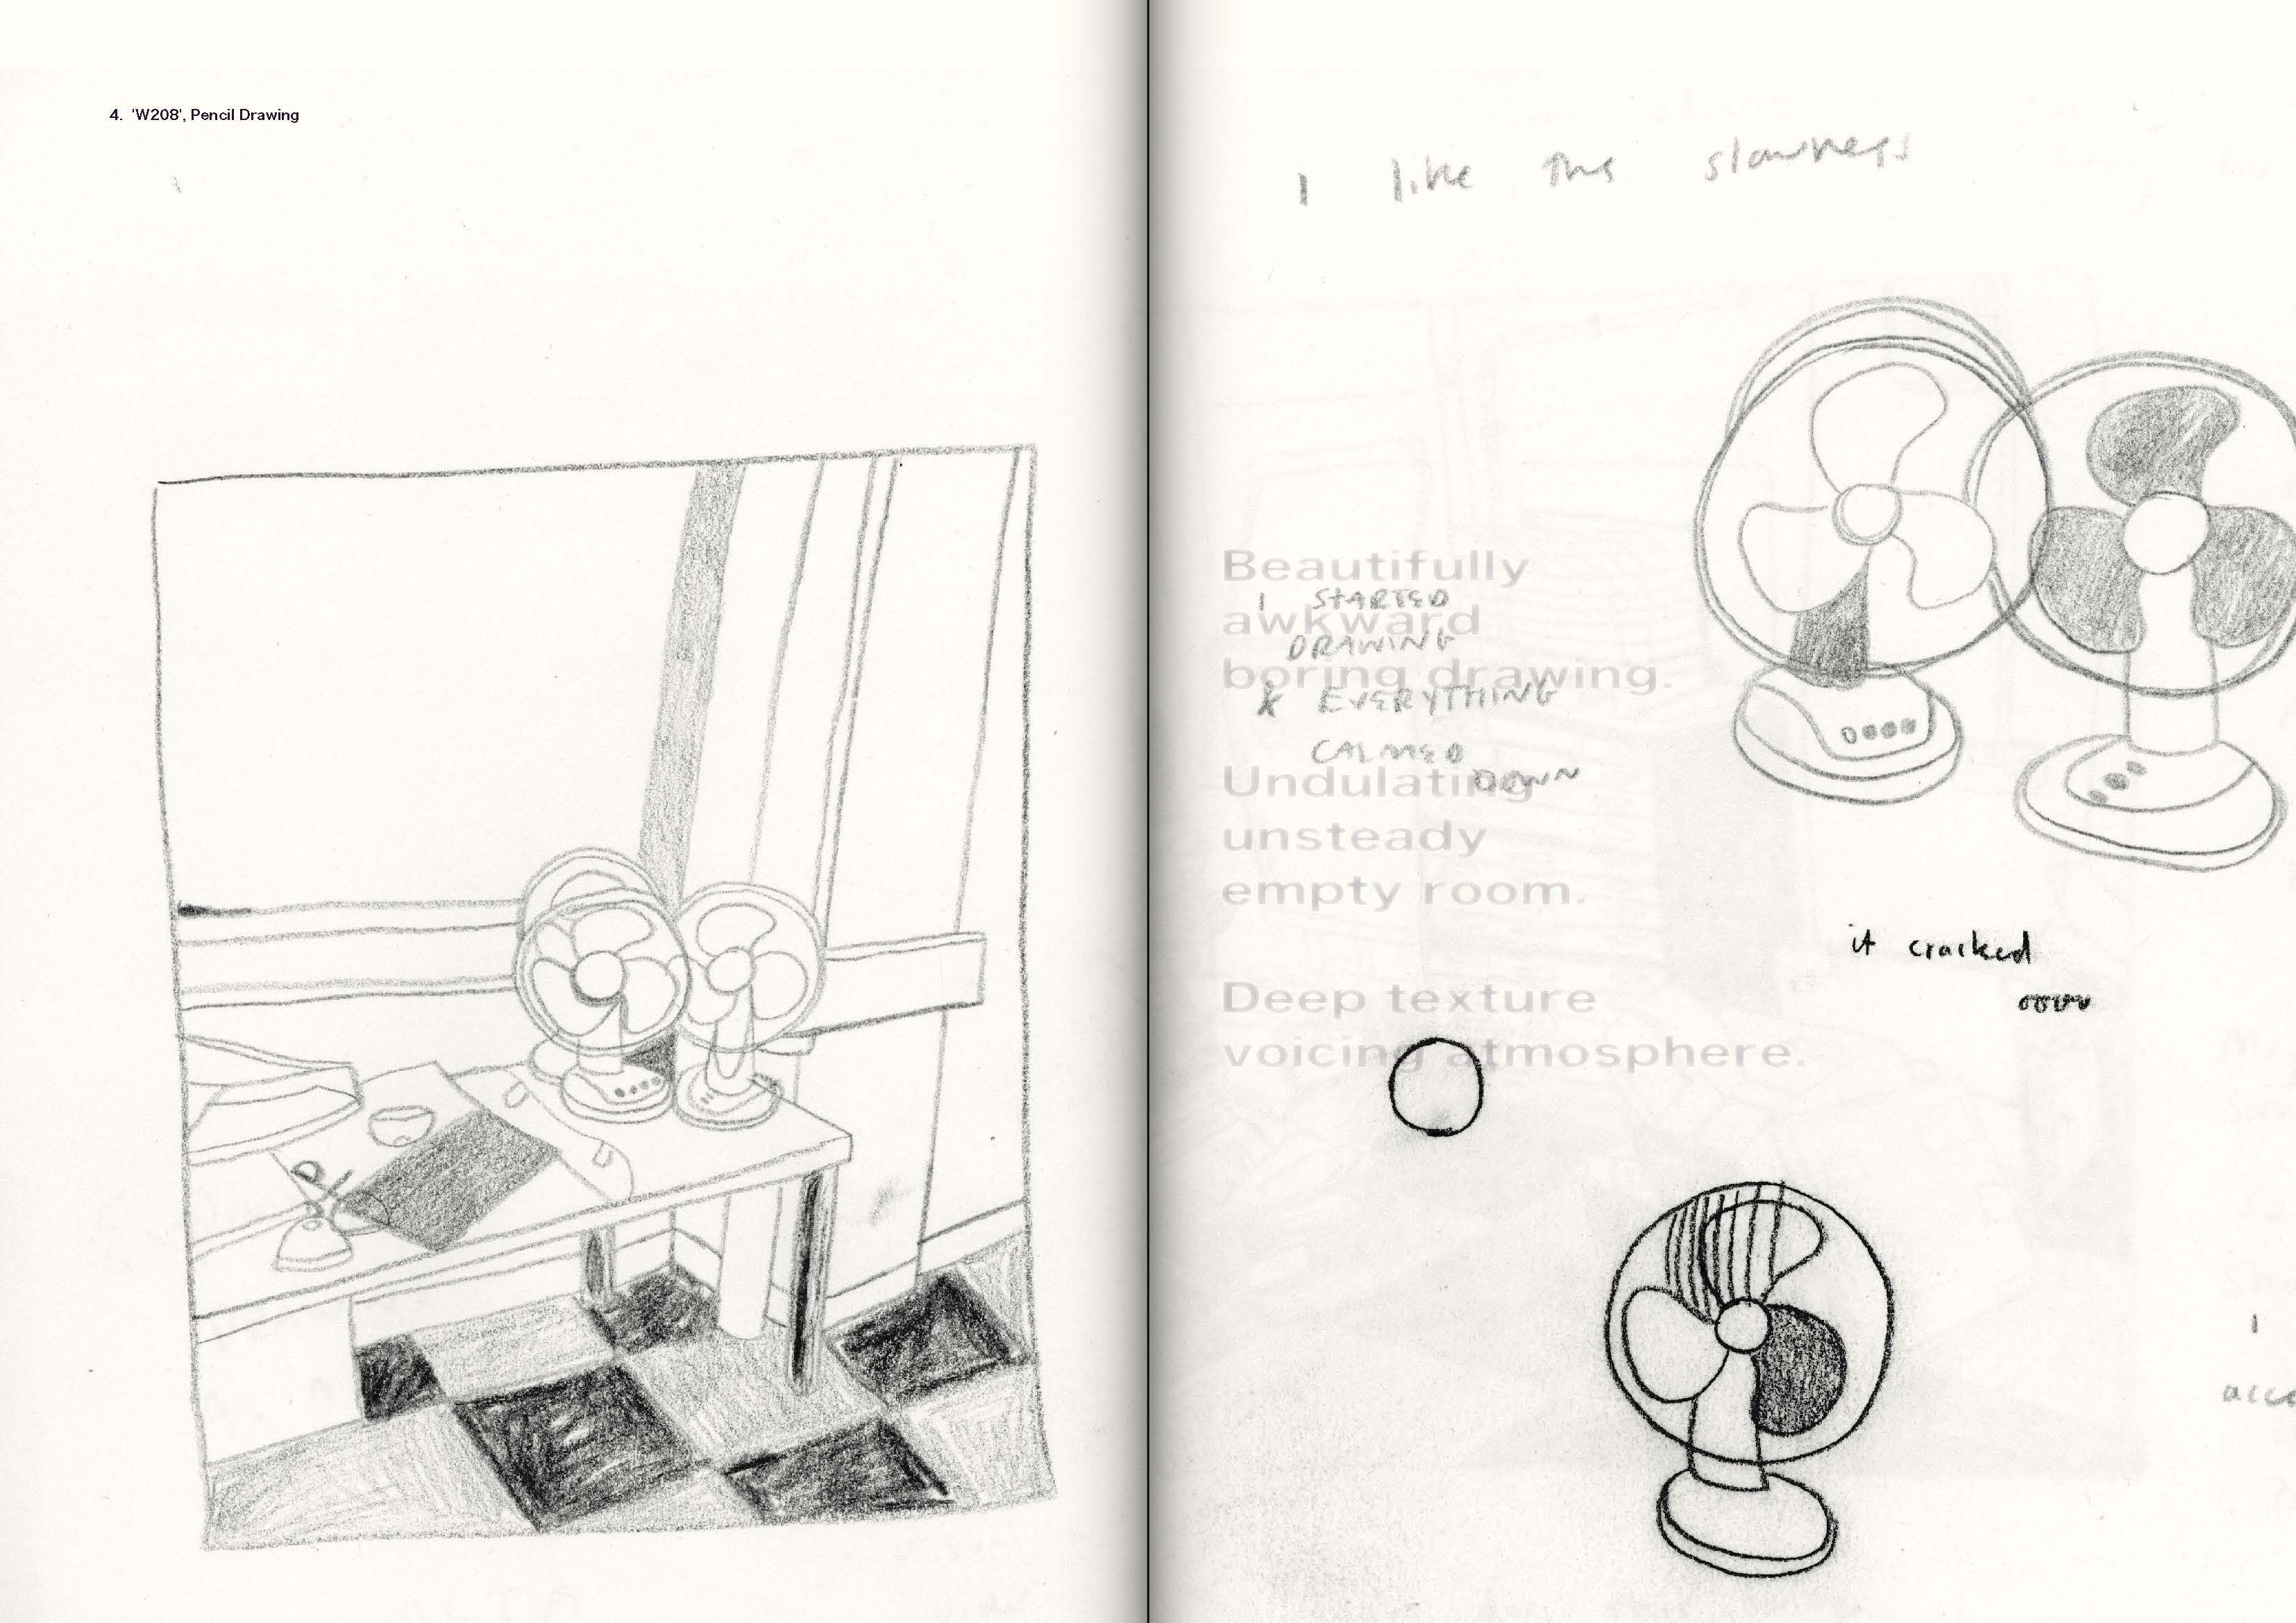 4. 'W208', Pencil Drawing
I like this slowness
Beautifully
awkward
boring drawing.
I STARTED
DRAWING
& EVERYTHING
CALMED
DOWN
Undulating
unsteady
empty room.
it cracked
Deep texture
voicing atmosphere.
I